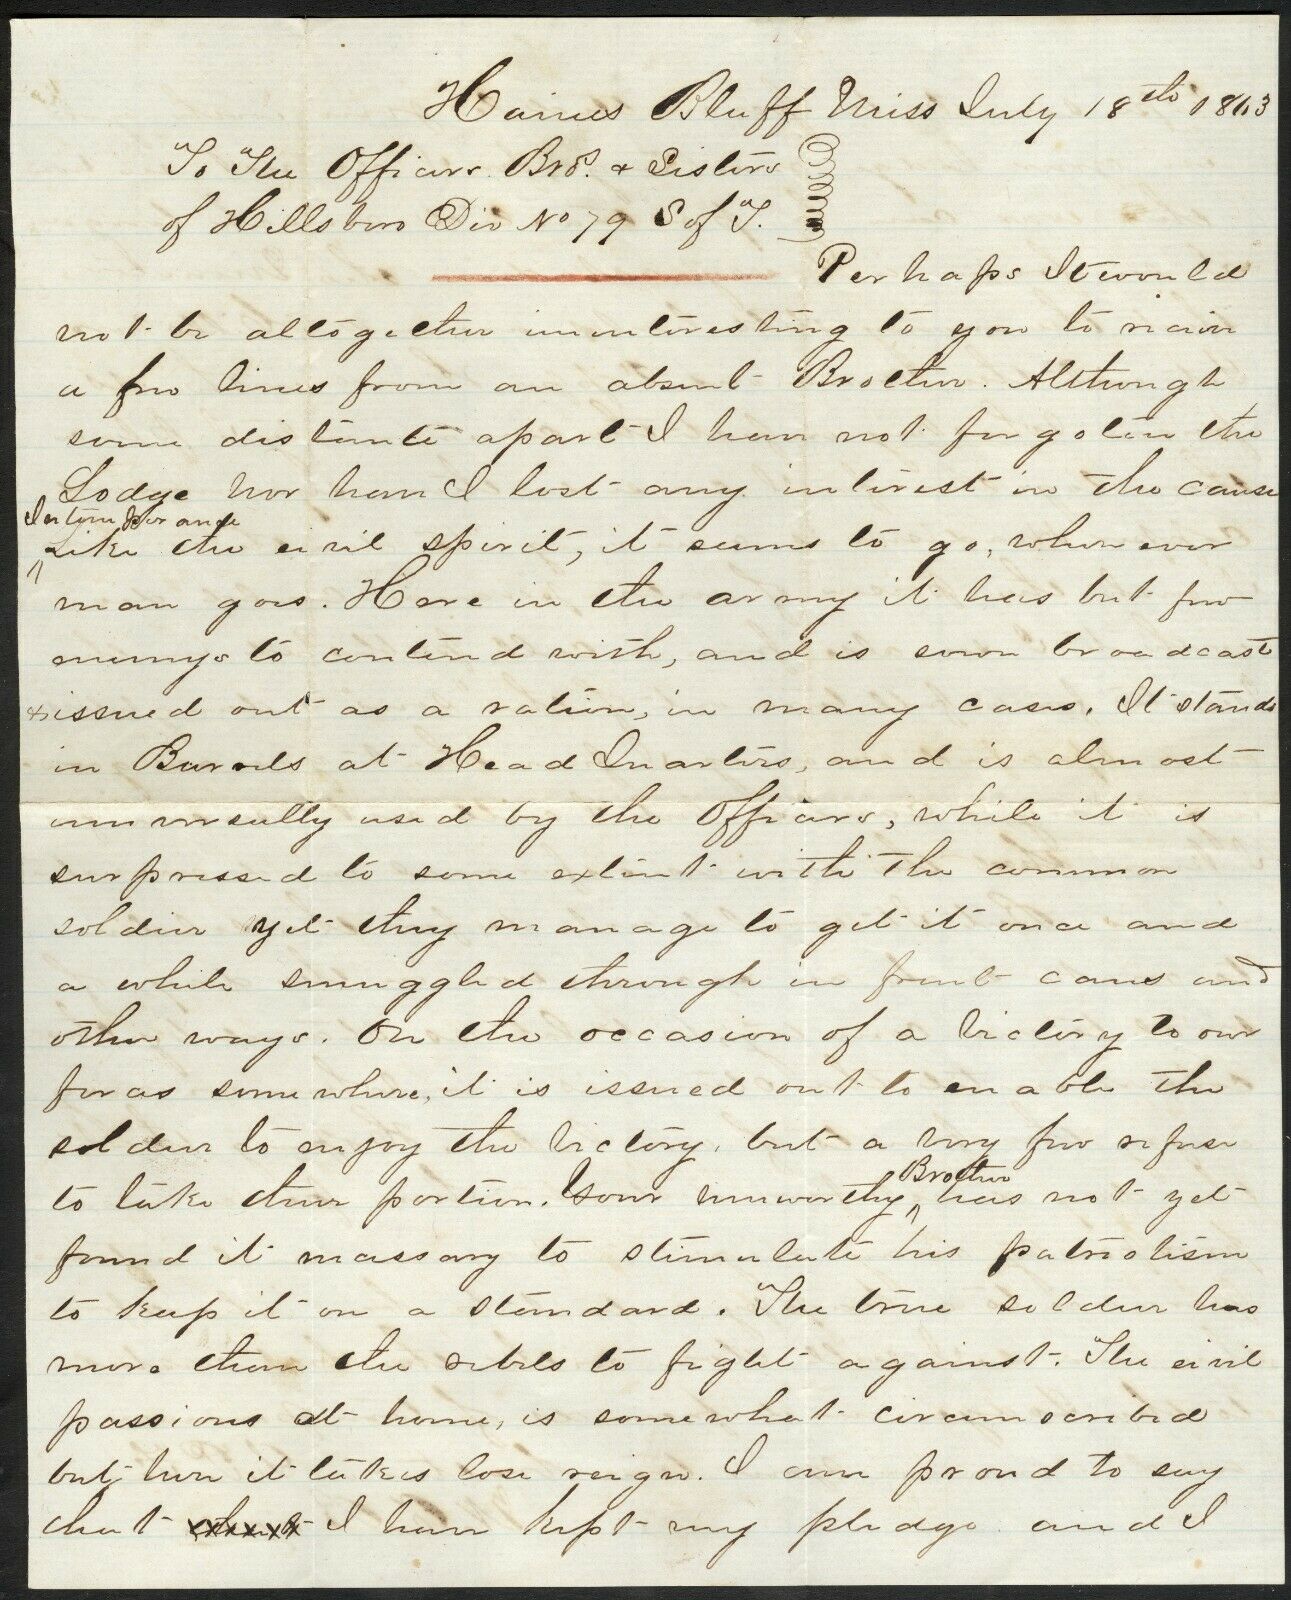 Haines Bluff Miss July 18th 1863
To The Officers Bros. & Sisters
of Hillsboro Div No 79 S of T.
Perhaps It would
not be altogether uninteresting to you to recieve
a few lines from an absent Brother. Although
some distante apart I have not forgoten the
Lodge nor have I lost any interest in the cause
Intemperance
Like the evil spirit, it seems to go, where ever
man goes. Here in the army it has but few
enemys to contend with, and is sown broadcast
& issued out as a ration, in many cases. It stands
in Barrels at Head Quarters, and is almost
universally used by the Officers, while it is
surpressed to some extent with the common
soldier yet they manage to get it once and
a while smuggled through in fruit cans and
other ways. On the occasion of a Victory to our
forces some where, it is issued out to enable the
soldier to enjoy the Victory, but a very few refuse
Brother
to take their portion. Your unworthy has not yet
found it nessassary to stimulate his patriotism
to keep it on a standard. The true soldier has
more than the rebels to fight against. The evil
passions at home, is somewhat circumscribed
but here it takes lose reign. I am proud to say
that I have kept my pledge and I